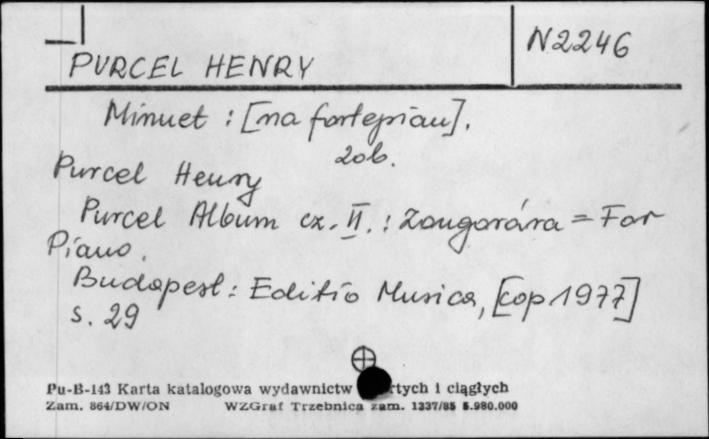 PURCEL HENRY
N2246
Minuet : [na fortepian].
zob.
Purcel Henry
Purcel Album cz. II. : Zongorára = For
Piano.
Budapest : Editio Musica, [cop 1977]
s. 29
Pu-B-143 Karta katalogowa wydawnictw rtych i ciągłych
Zam. 864/DW/ON WZGraf Trzebnica zam. 1337/85 5.980.000